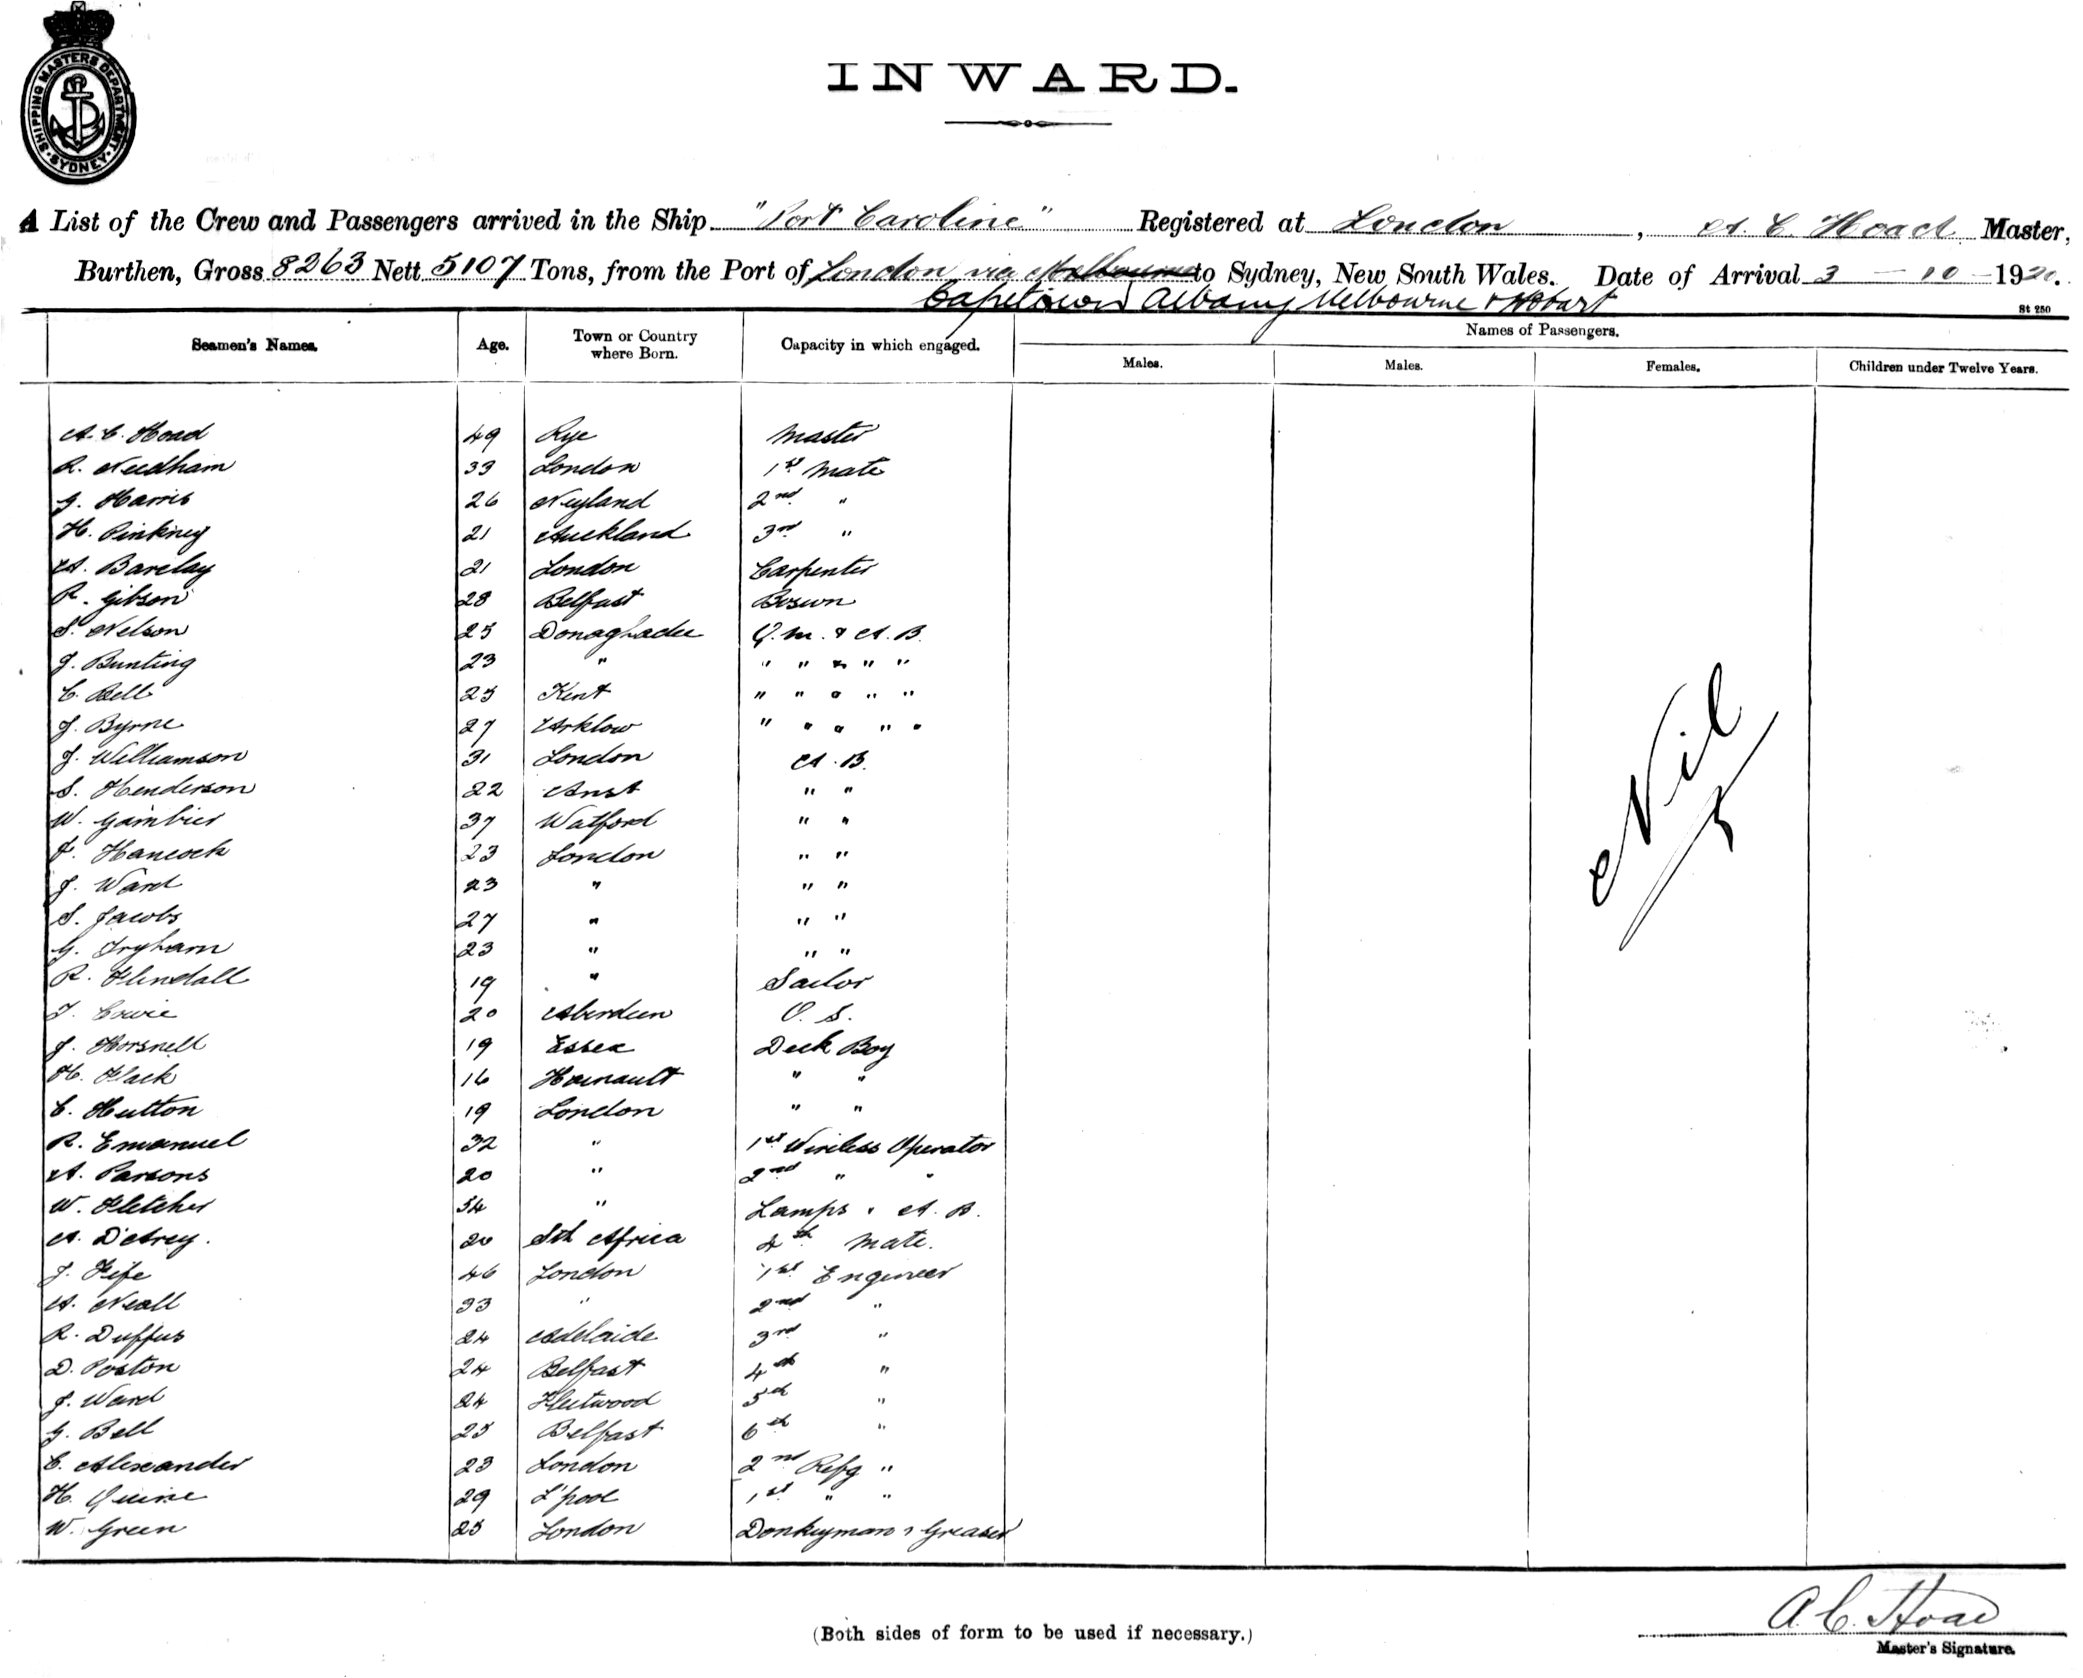 SHIPPING MASTERS DEPARTMENT
SYDNEY
INWARD.
A List of the Crew and Passengers arrived in the Ship "Port Caroline" Registered at London, A. C. Hoad Master,
Burthen, Gross 8263 Nett 5107 Tons, from the Port of London via Melbourne to Sydney, New South Wales. Date of Arrival 3 - 10 - 1920.
Capetown Albany Melbourne & Hobart
St 250
Seamen's Names. Age. Town or Country where Born. Capacity in which engaged. Names of Passengers.
Males. Males. Females. Children under Twelve Years.
A. C. Hoad 49 Rye Master
R. Needham 33 London 1st Mate
G. Harris 26 Neyland 2nd "
H. Pinkney 21 Auckland 3rd "
A. Barclay 21 London Carpenter
R. Gibson 28 Belfast Bosun
S. Nelson 25 Donaghadee Q.M. & A.B.
J. Bunting 23 " " " " " "
C. Bell 25 Kent " " " " "
J. Byrne 27 Arklow " " " " "
J. Williamson 31 London A.B.
S. Henderson 22 Anst " "
W. Gambier 37 Watford " "
F. Hancock 23 London " "
J. Ward 23 " " "
S. Jacobs 27 " " "
G. 23 " " "
R. Flindall 19 " Sailor
J. Cowie 20 Aberdeen O.S.
J. Horsnell 19 Essex Deck Boy
H. Flack 16 Hainault " "
C. Hutton 19 London " "
R. Emanuel 32 " 1st Wireless Operator
A. Parsons 20 " 2nd " "
W. Fletcher 54 " Lamps & A.B.
A. D'Arcy. 20 Sth Africa 4th Mate.
J. Fife 46 London 1st Engineer
A. Neall 33 " 2nd "
R. Duffus 24 Adelaide 3rd "
D. Poston 24 Belfast 4th "
J. Ward 24 Fleetwood 5th "
G. Bell 25 Belfast 6th "
C. Alexander 23 London 2nd Refg "
H. Quine 29 L'pool 1st " "
W. Green 25 London Donkeyman & Greaser
Nil
(Both sides of form to be used if necessary.)
A. C. Hoad
Master's Signature.